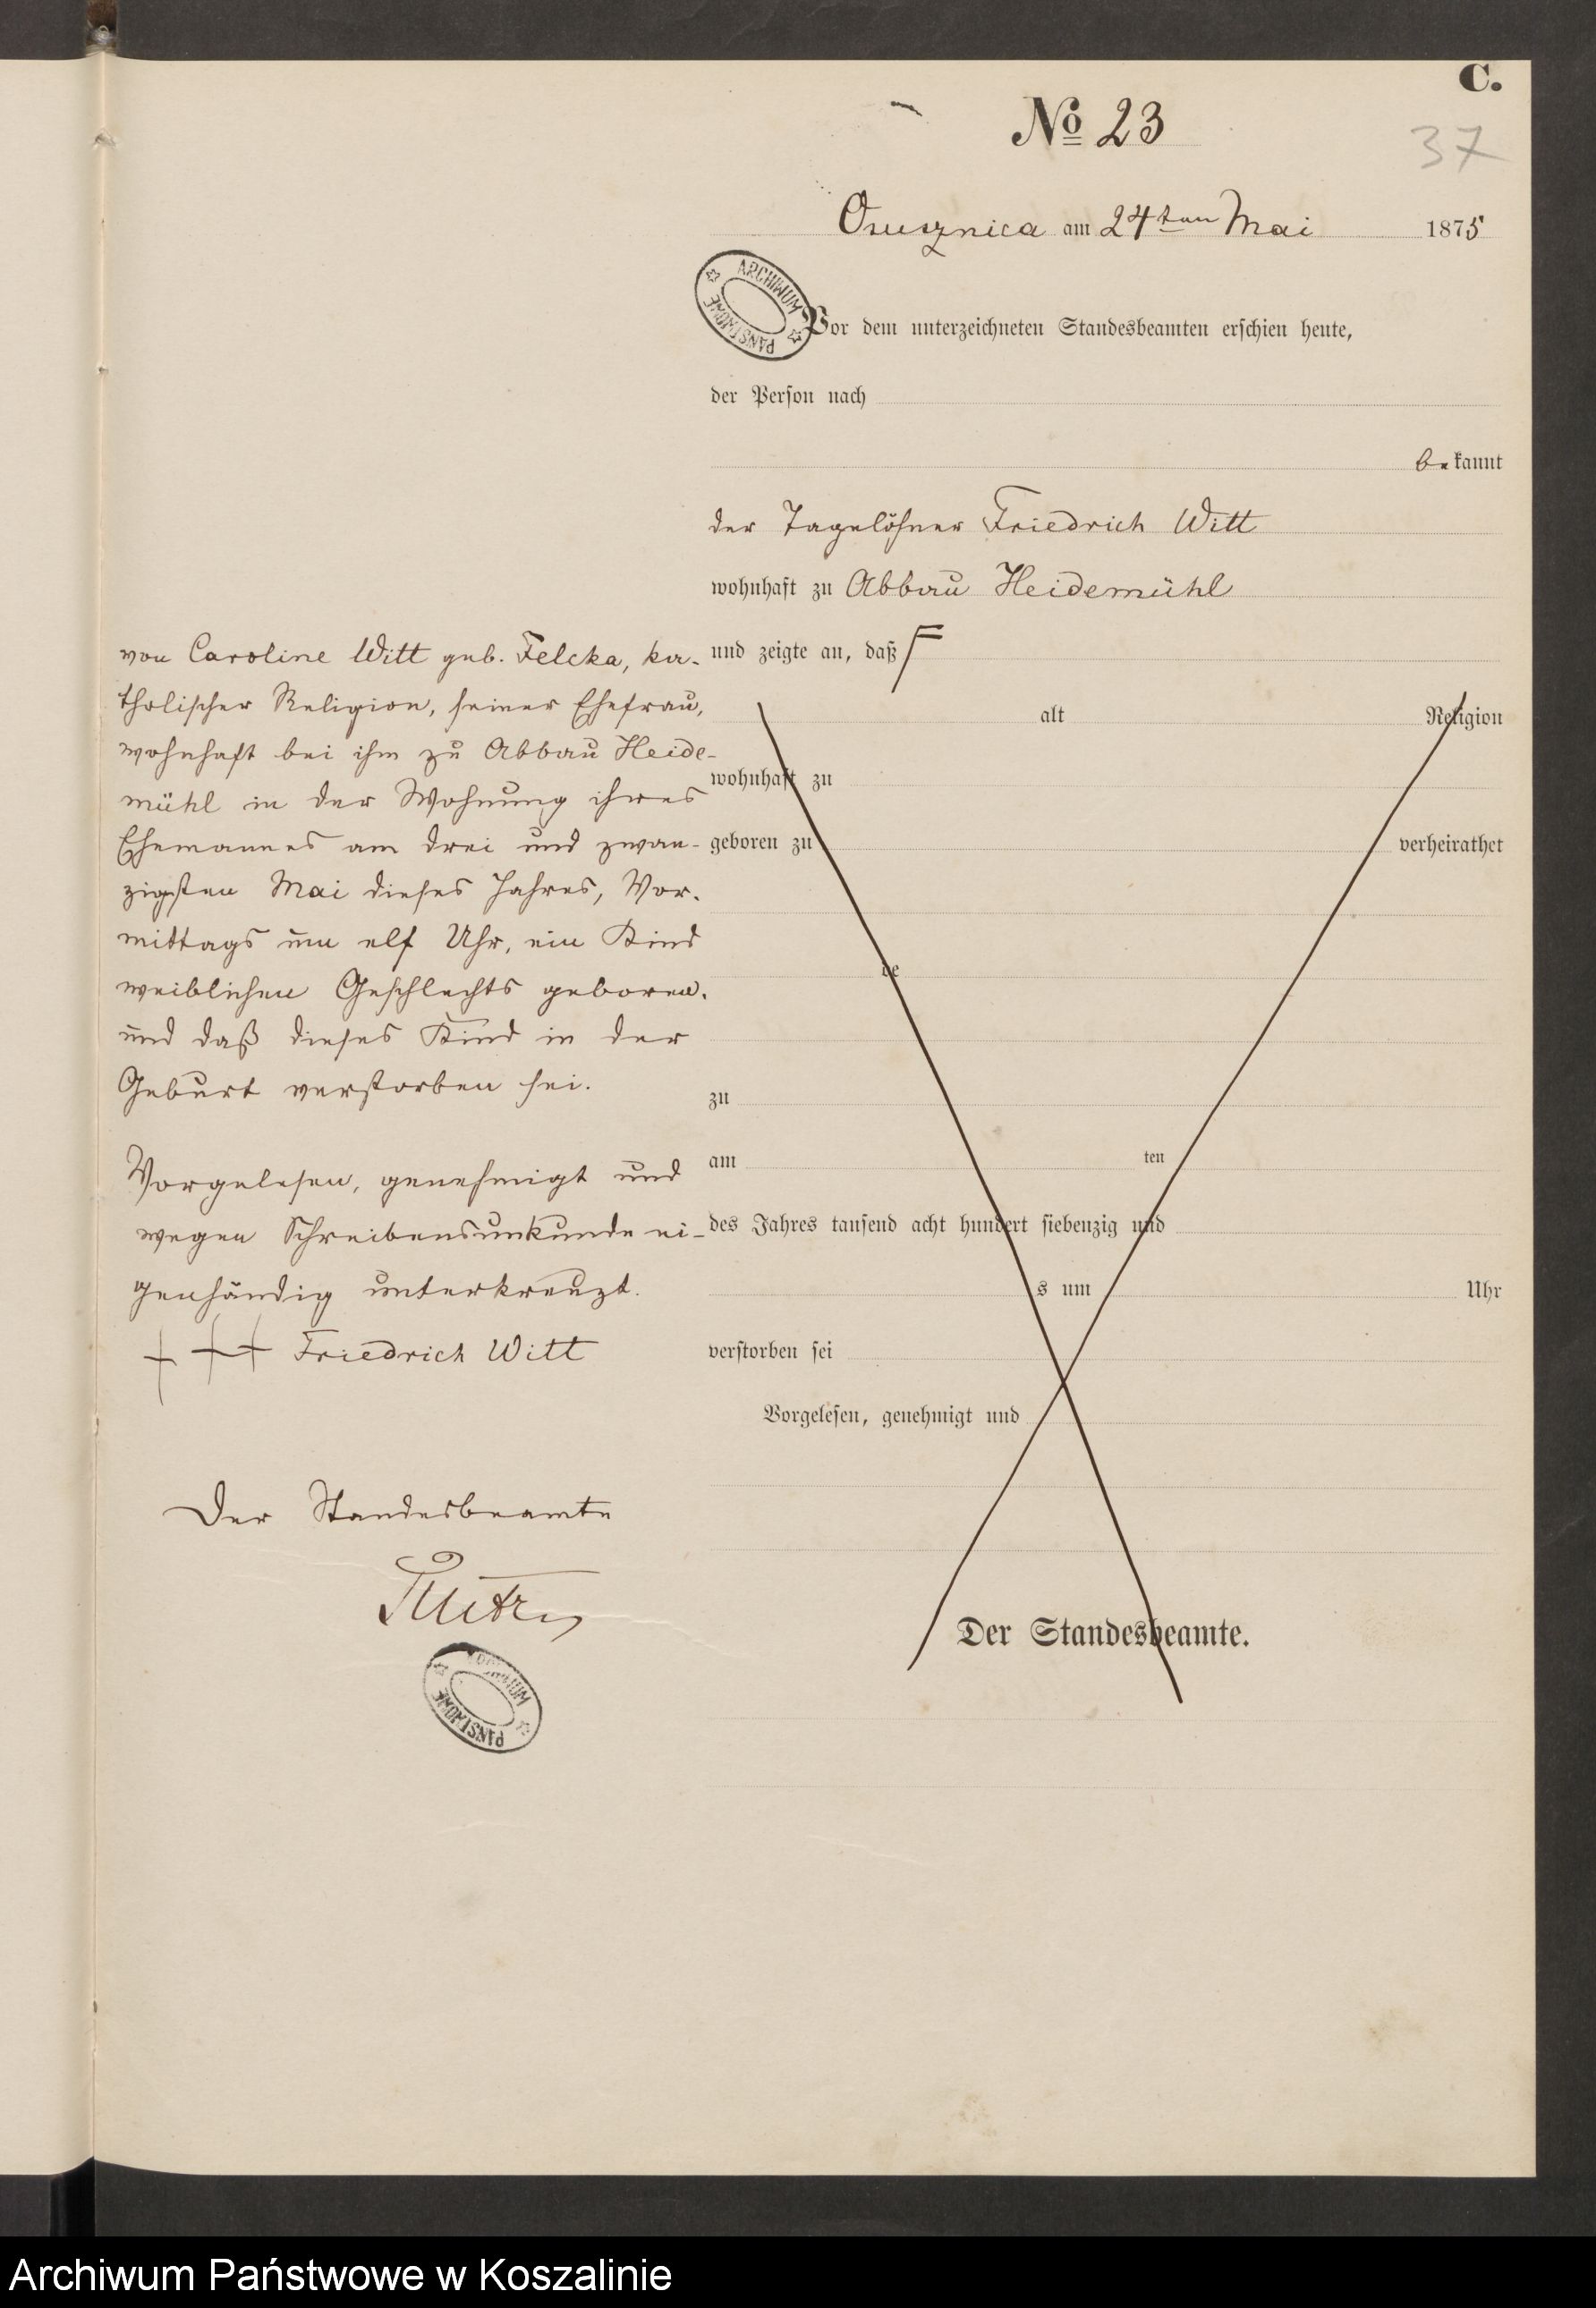 C.
№ 23
37
Osusznica am 24ten Mai 1875
ARCHIWUM PAŃSTWOWE
Vor dem unterzeichneten Standesbeamten erschien heute,
der Person nach
bekannt
der Tagelöhner Friedrich Witt
wohnhaft zu Abbau Heidemühl
und zeigte an, daß
von Caroline Witt geb. Felcka, ka-
tholischer Religion, seiner Ehefrau,
wohnhaft bei ihm zu Abbau Heide-
mühl in der Wohnung ihres
Ehemannes am drei und zwan-
zigsten Mai dieses Jahres, Vor-
mittags um elf Uhr, ein Kind
weiblichen Geschlechts geboren,
und daß dieses Kind in der
Geburt verstorben sei.
Vorgelesen, genehmigt und
wegen Schreibensunkunde ei-
genhändig unterkreuzt.
+ + + Friedrich Witt
Der Standesbeamte
ARCHIWUM PAŃSTWOWE
alt Religion
wohnhaft zu
geboren zu verheirathet
de
zu
am ten
des Jahres tausend acht hundert siebenzig und
s um Uhr
verstorben sei
Vorgelesen, genehmigt und
Der Standesbeamte.
Archiwum Państwowe w Koszalinie